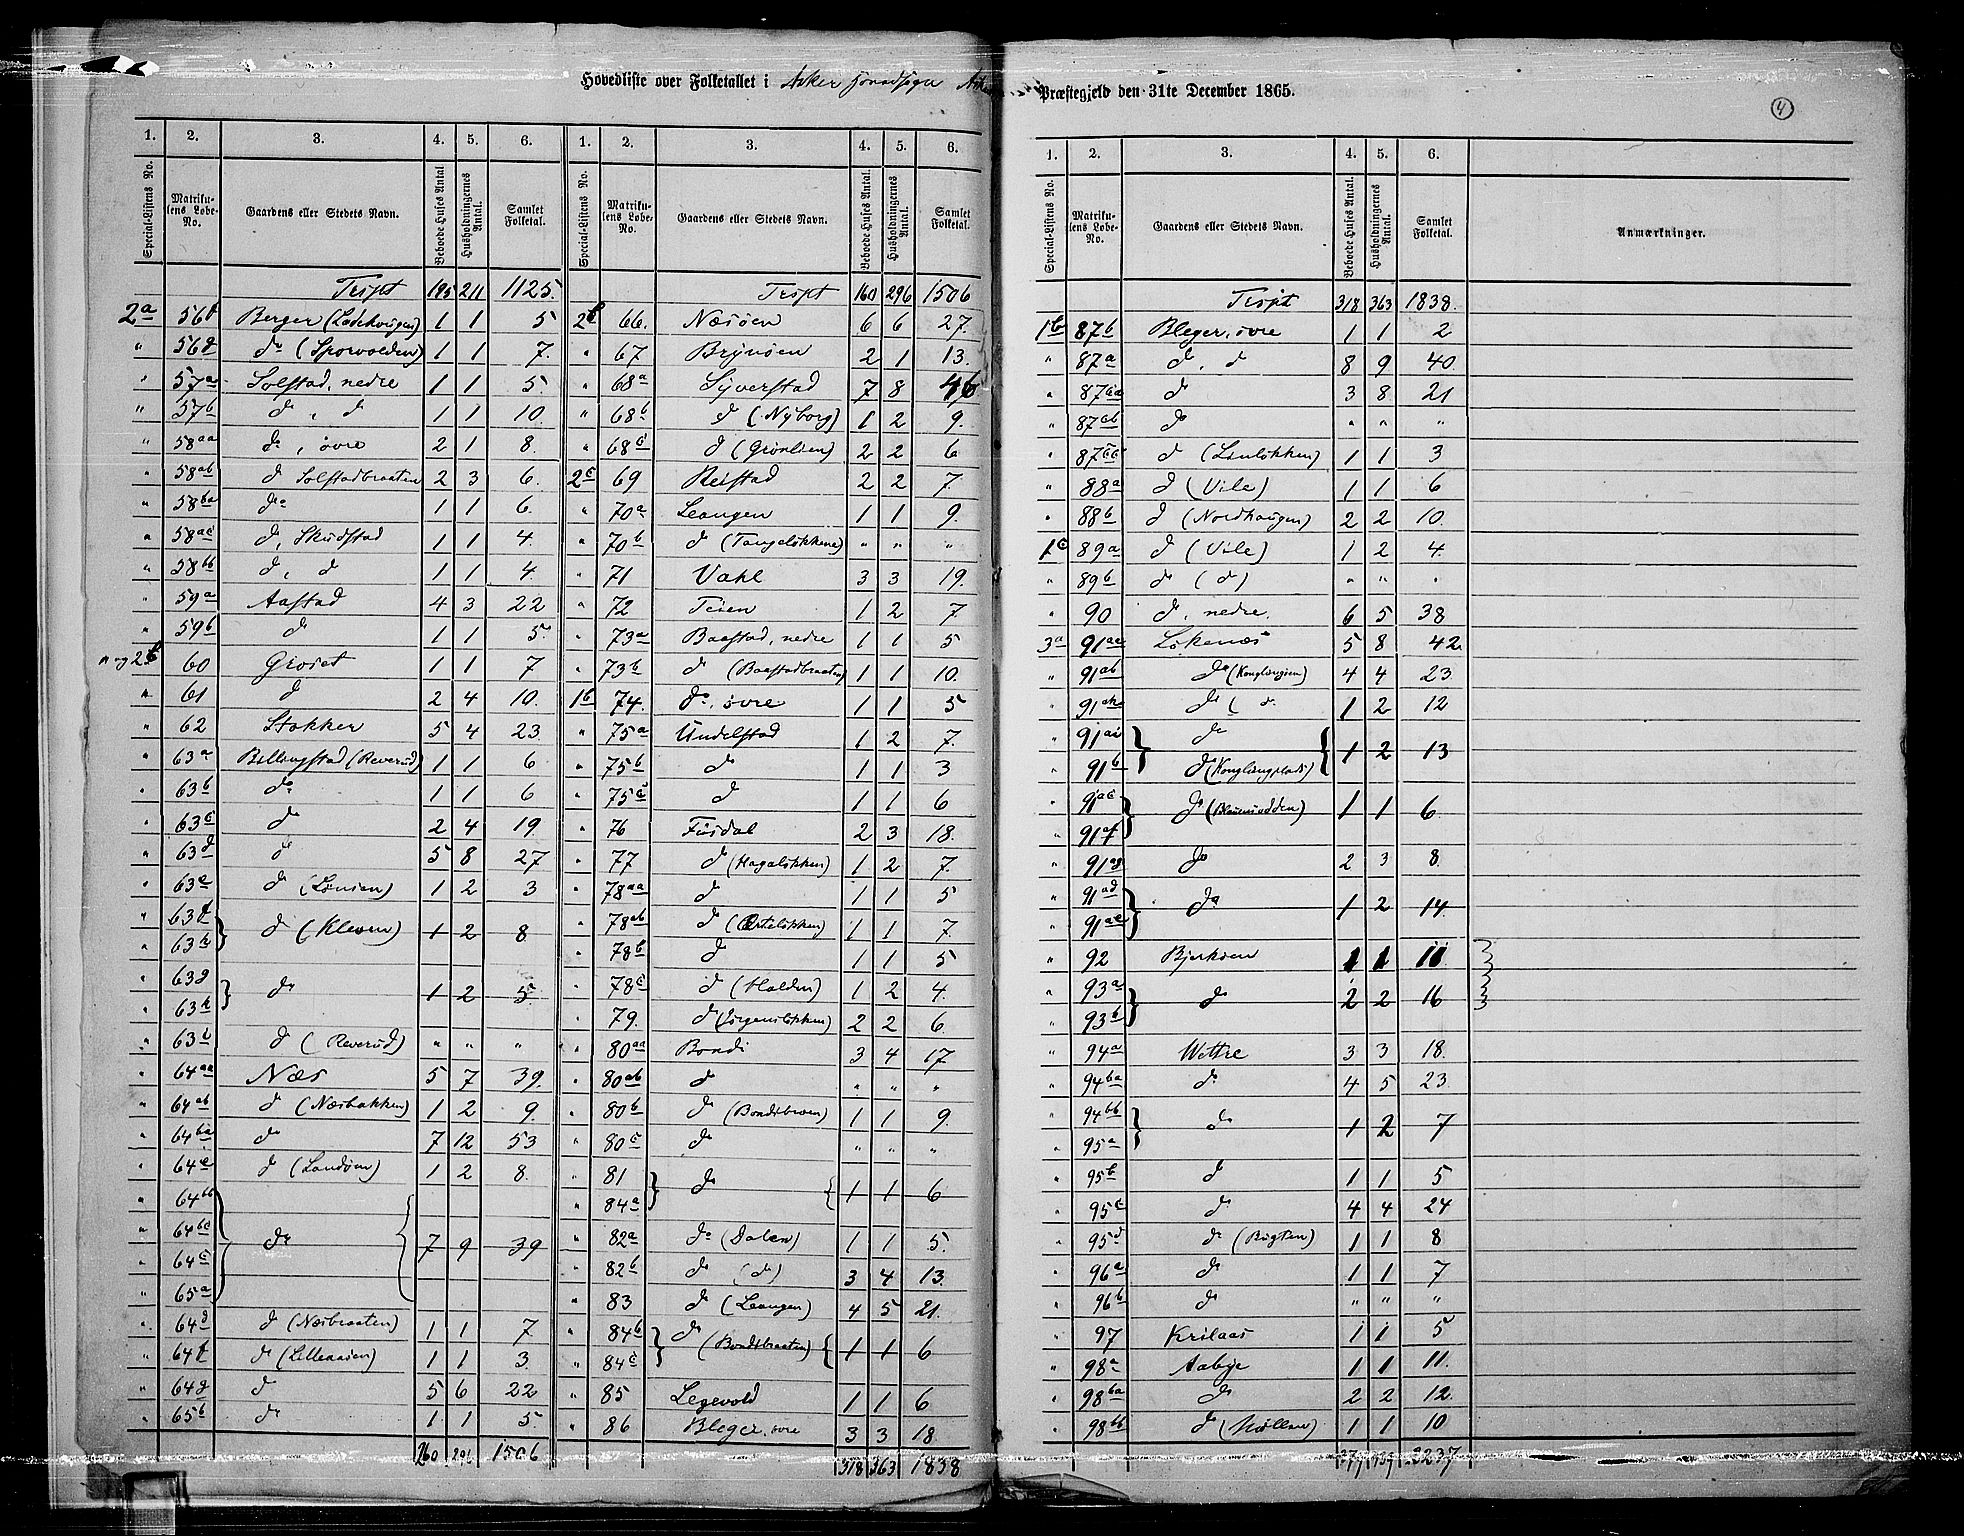 Hovedliste over Folketallet i Asker Asker Præstegjeld den 31te December 1865.
4
1. 2. 3. 4. 5. 6.
Special-Listens No. Matrikulens Løbe-No. Gaardens eller Stedets Navn. Beboede Huses Antal Husholdningernes Antal. Samlet Folketal.
Trspt 195 211 1125.
2a 56f Berger (Ladehaugen) 1 1 5
" 56g do (Sporvolden) 1 1 7.
" 57a Solstad, nedre 1 1 5.
" 57b do, do 1 1 10.
" 58aa do, øvre 2 1 8.
" 58ab do Solstadbraaten 2 3 6.
" 58ba do 1 1 6.
" 58ac do, Skudstad 1 1 4.
" 58bb do, do 1 1 4.
" 59a Aastad 4 3 22
" 59b do 1 1 5.
" og 2b 60 Groset 1 1 7
" 61 do 2 4 10.
" 62 Stokker 5 4 23.
" 63a Billingstad (Reverud) 1 1 6
" 63b do 1 1 6
" 63c do 2 4 19.
" 63d do 5 8 27
" 63e do (Lønien) 1 2 3
" 63f
" 63k do (Kleven) 1 2 8
" 63g
" 63h do 1 2 5
" 63i do (Reverud) " " "
" 64aa Næs 5 7 39.
" 64ab do (Næsbakken) 1 2 9.
" 64ba do 7 12 53
" 64e do (Landøen) 1 2 8.
" 64bb
" 64bc
" 64c
" 65a do 7 9 39
" 64d do (Næsbraaten) 1 1 7
" 64f do (Lilleaasen) 1 1 3.
" 64g do 5 6 22
" 65b do 1 1 5
260 296 1506
1. 2. 3. 4. 5. 6.
Special-Listens No. Matrikulens Løbe-No. Gaardens eller Stedets Navn. Beboede Huses Antal. Husholdningernes Antal. Samlet Folketal.
Trspt 160 296 1506
2b 66. Næsøen 6 6 27.
" 67 Brynøen 2 1 13.
" 68a Syverstad 7 8 46
" 68b do (Nyborg) 1 2 9.
" 68c do (Grønlien) 2 2 6
2c 69 Reistad 2 2 7.
" 70a Leangen 1 1 9.
" 70b do (Tangeløkkene) " " "
" 71 Vahl 3 3 19.
" 72 Teien 1 2 7
" 73a Baastad, nedre 1 1 5
" 73b do (Baastadbraaten) 1 1 10.
1b 74. do, øvre 1 1 5
" 75a Undelstad 1 2 7.
" 75b do 1 1 3
" 75c do 1 1 6
" 76 Fusdal 2 3 18.
" 77 do (Hagaløkken) 1 2 7.
" 78aa do 1 1 5
" 78ab do (Erteløkken) 1 1 7.
" 78b do 1 1 5
" 78c do (Holden) 1 2 4.
" 79. do (Jørgensløkken) 2 2 6.
" 80aa Bondi 3 4 17
" 80ab do " " "
" 80b do (Bondibroen) 1 1 9.
" 80c do " " "
" 81
" 84a do 1 1 6
" 82a do (Dalen) 1 1 5.
" 82b do (do) 3 4 13.
" 83 do (Leangen) 4 5 21.
" 84b
" 84c do (Bondibraaten) 1 1 6
" 85 Legevold 1 1 6
" 86 Bleger, øvre 3 3 18
318 363 1838
1. 2. 3. 4. 5. 6.
Special-Listens No. Matrikulens Løbe-No. Gaardens eller Stedets Navn. Beboede Huses Antal. Husholdningernes Antal. Samlet Folketal. Anmærkninger.
Trspt 318 363 1838.
1b 87b Bleger, øvre 1 1 2
" 87a do, do 8 9 40
" 87ca do 3 8 21
" 87cb do " " "
" 87cc do (Lauløkken) 1 1 3
" 88a do (Vile) 1 1 6
" 88b do (Nordhaugen) 2 2 10.
1c 89a do (Vile) 1 2 4.
" 89b do (do) " " "
" 90 do, nedre. 6 5 38
3a 91aa Løkenæs 5 8 42.
" 91ab do (Konglungen) 4 4 23
" 91ah do (do 1 2 12
" 91ai do
" 91b do (Konglungplads) 1 2 13
" 91ac
" 91af do (Blaumudden) 1 1 6
" 91ag do 2 3 8.
" 91ad
" 91ae do 1 2 14
" 92 Bjerkøen 1 1 11
" 93a
" 93b do 2 2 16
" 94a Wettre 3 3 18.
" 94ba do 4 5 23
" 94bb
" 95a do 1 2 7
" 95b do 1 1 5
" 95c do 4 4 24
" 95d do (Bugten) 1 1 8
" 96a do 1 1 7
" 96b do " " "
" 97 Krilaas 1 1 5
" 98a Aabye 1 1 11.
" 98ba do 2 2 12.
" 98bb do (Møllen) 1 1 10
2237